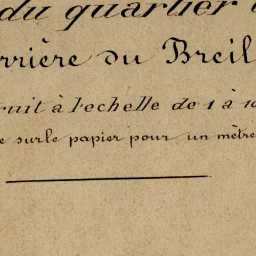 du quartier
rrière du Breil
ruit à l'echelle de 1 à 10
e sur le papier pour un mètre